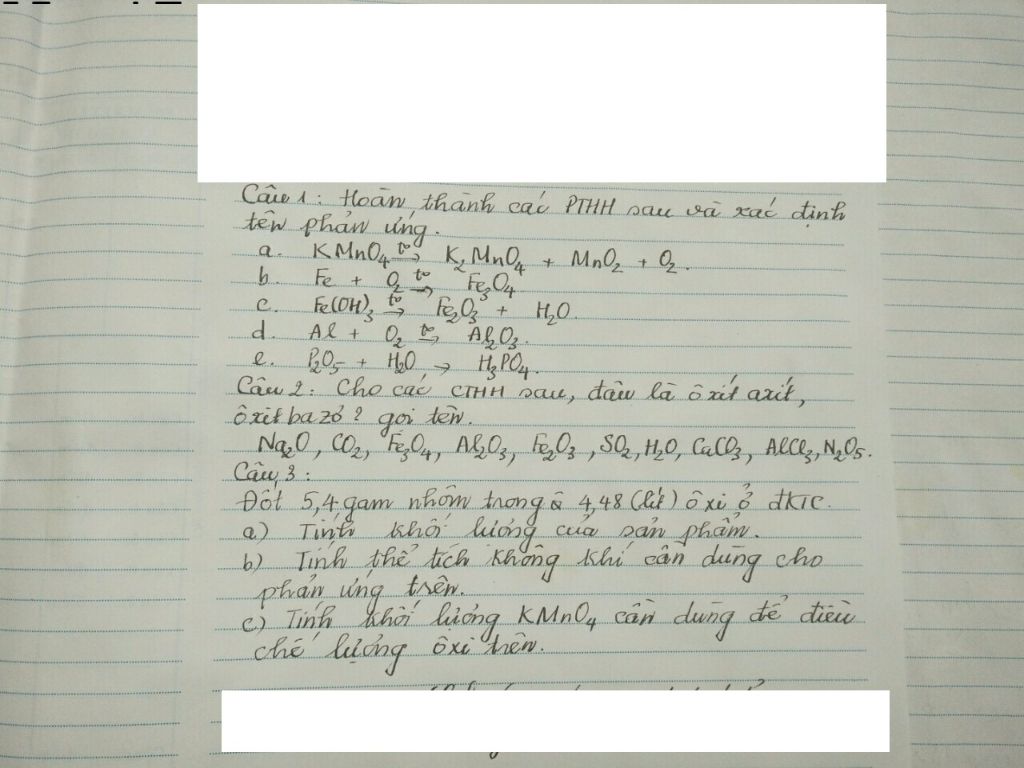 Câu 1: Hoàn thành các PTHH sau và xác định
tên phản ứng.
a. KMnO₄ →(t°) K₂MnO₄ + MnO₂ + O₂.
b. Fe + O₂ →(t°) Fe₃O₄
c. Fe(OH)₃ →(t°) Fe₂O₃ + H₂O.
d. Al + O₂ →(t°) Al₂O₃.
e. P₂O₅ + H₂O → H₃PO₄.
Câu 2: Cho các CTHH sau, đâu là ôxit axit,
ôxit bazơ? gọi tên.
Na₂O, CO₂, Fe₃O₄, Al₂O₃, Fe₂O₃, SO₂, H₂O, CaCO₃, AlCl₃, N₂O₅.
Câu 3:
Đốt 5,4 gam nhôm trong 4,48 (lít) ôxi ở đKTC.
a) Tính khối lượng của sản phẩm.
b) Tính thể tích không khí cần dùng cho
phản ứng trên.
c) Tính khối lượng KMnO₄ cần dùng để điều
chế lượng ôxi trên.